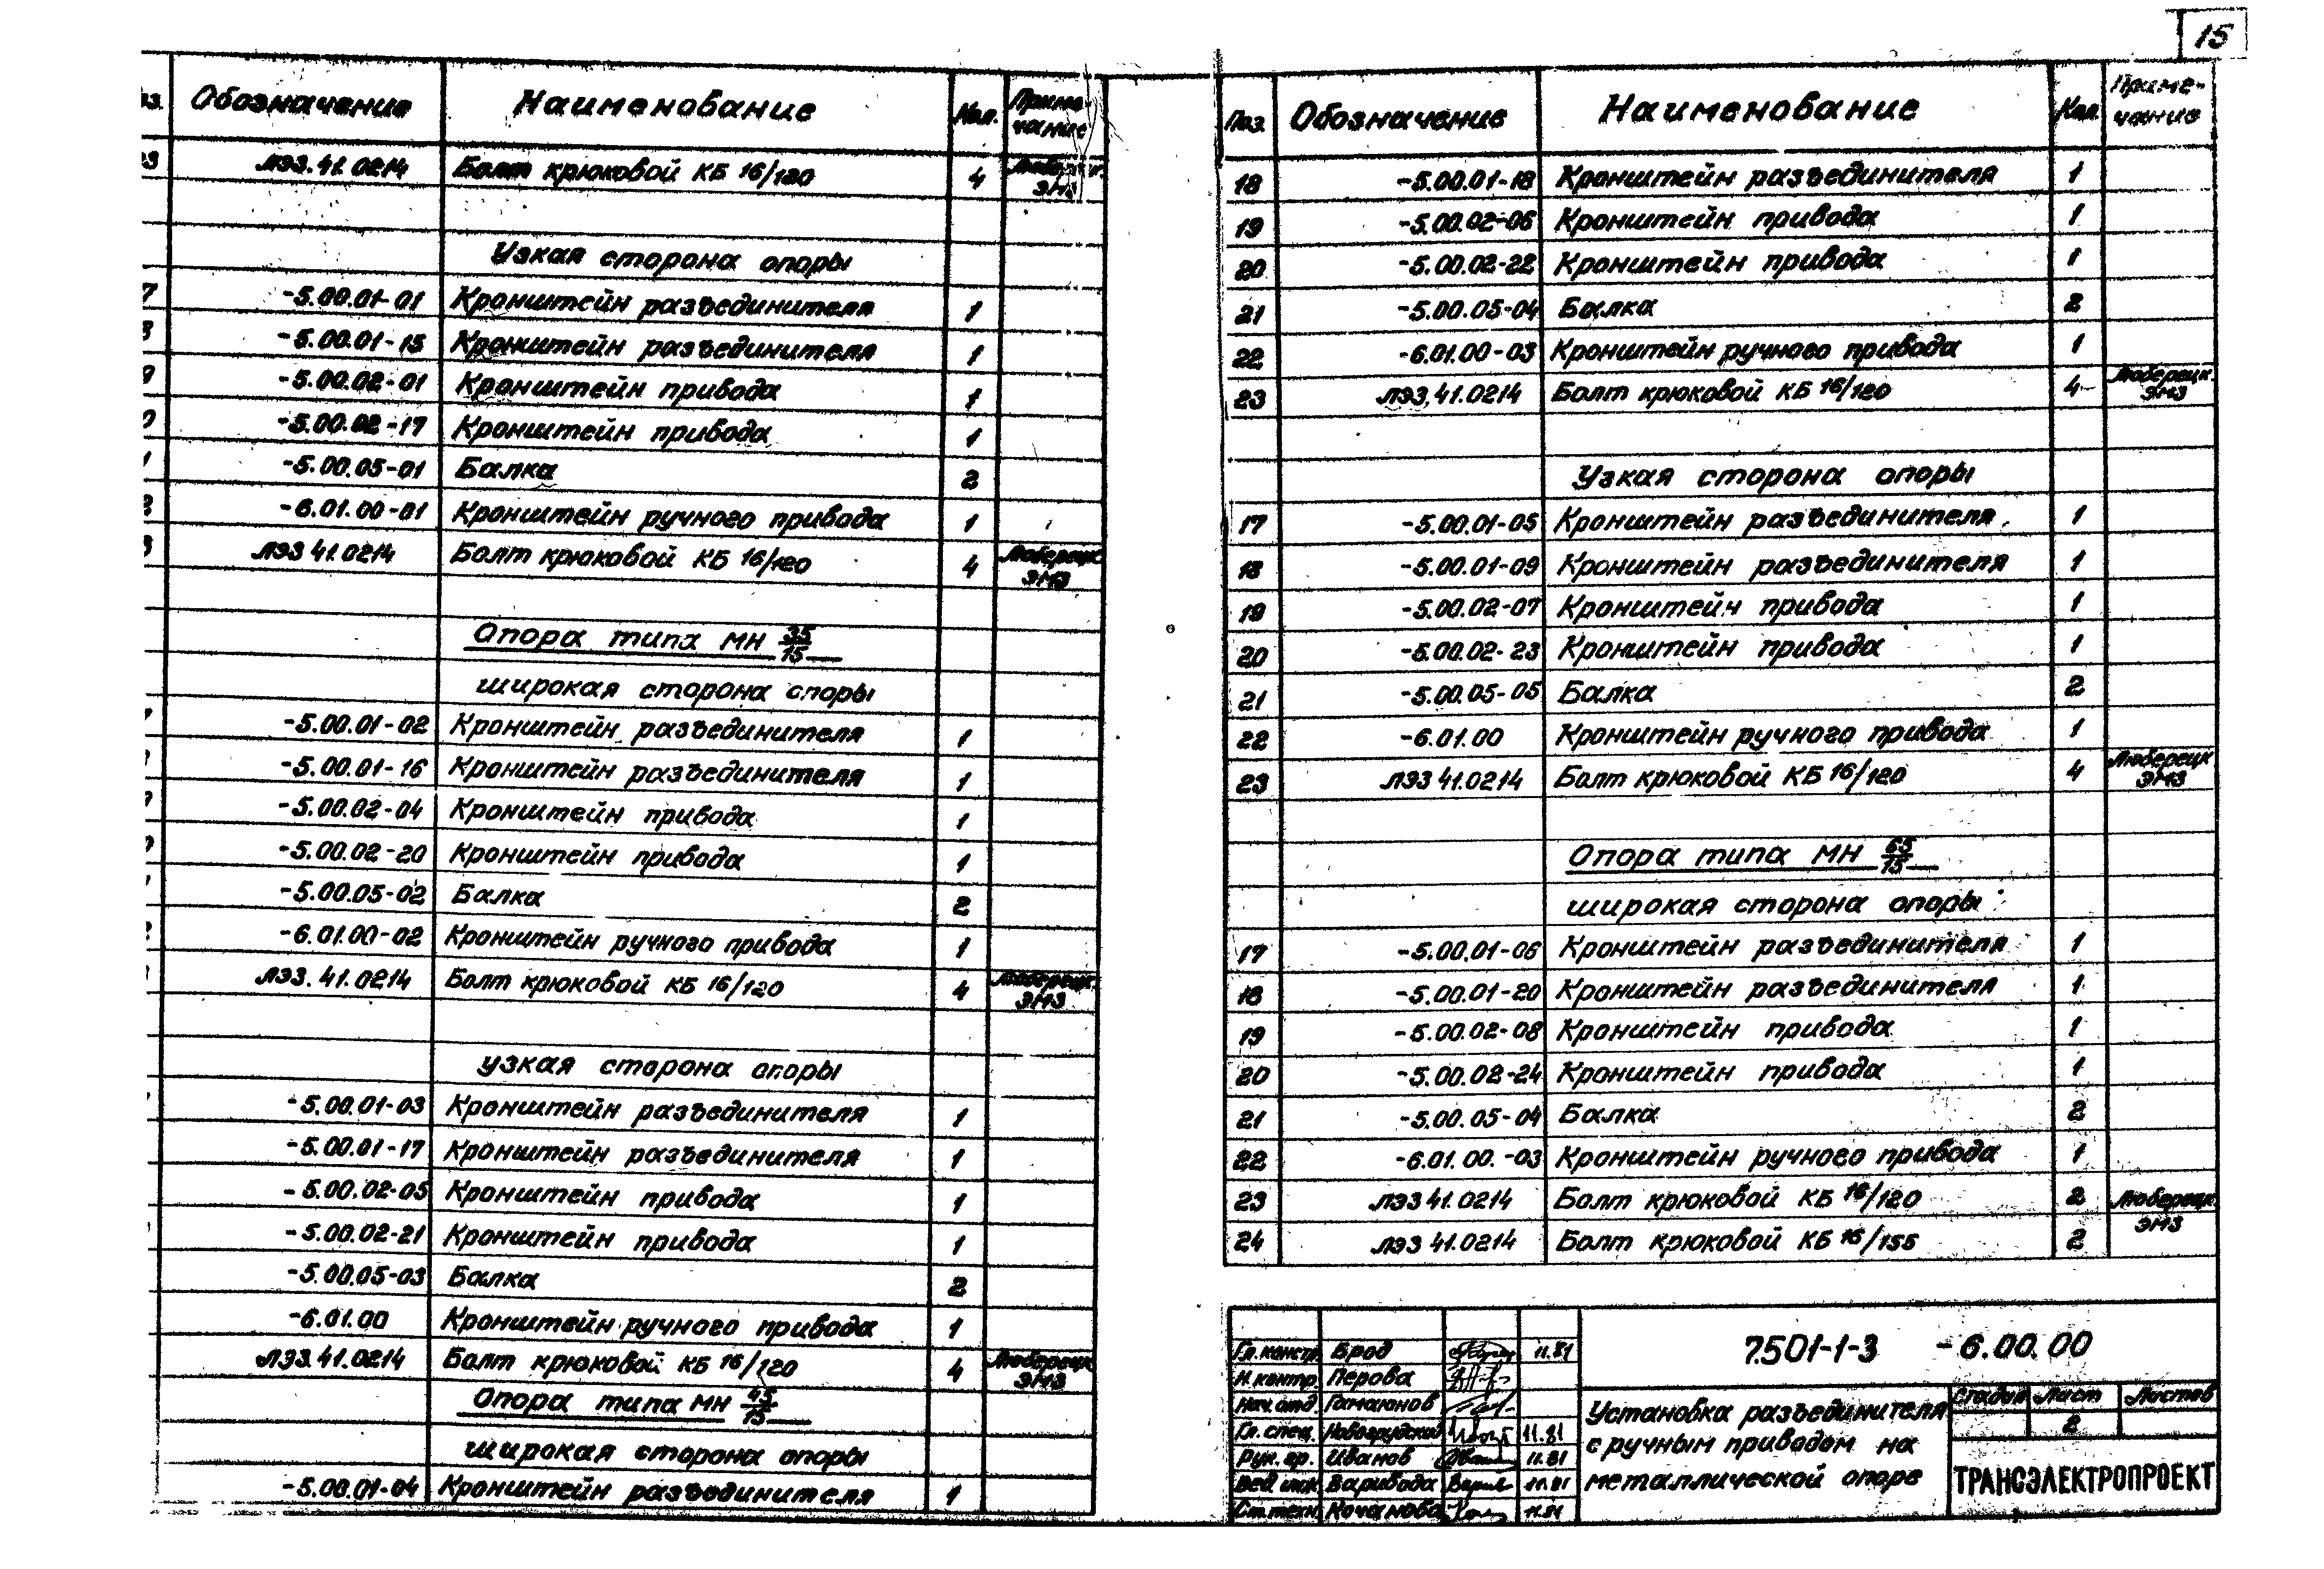 15
Обозначение Наименование Кол. Приме-
чание
23 ЛЭЗ.41.0214 Болт крюковой КБ 16/120 4 Люберецк.
ЭМЗ
Узкая сторона опоры
7 -5.00.01-01 Кронштейн разъединителя 1
8 -5.00.01-15 Кронштейн разъединителя 1
9 -5.00.02-01 Кронштейн привода 1
0 -5.00.02-17 Кронштейн привода 1
1 -5.00.05-01 Балка 2
2 -6.01.00-01 Кронштейн ручного привода 1
3 ЛЭЗ 41.0214 Болт крюковой КБ 16/120 4 Люберецк
ЭМЗ
Опора типа МН 35/15
широкая сторона опоры
-5.00.01-02 Кронштейн разъединителя 1
-5.00.01-16 Кронштейн разъединителя 1
-5.00.02-04 Кронштейн привода 1
-5.00.02-20 Кронштейн привода 1
-5.00.05-02 Балка 2
-6.01.00-02 Кронштейн ручного привода 1
ЛЭЗ.41.0214 Болт крюковой КБ 16/120 4 Люберецк.
ЭМЗ
узкая сторона опоры
-5.00.01-03 Кронштейн разъединителя 1
-5.00.01-17 Кронштейн разъединителя 1
-5.00.02-05 Кронштейн привода 1
-5.00.02-21 Кронштейн привода 1
-5.00.05-03 Балка 2
-6.01.00 Кронштейн ручного привода 1
ЛЭЗ.41.0214 Болт крюковой КБ 16/120 4 Люберецк
ЭМЗ
Опора типа МН 45/15
широкая сторона опоры
-5.00.01-04 Кронштейн разъединителя 1
Поз. Обозначение Наименование Кол. Приме-
чание
18 -5.00.01-18 Кронштейн разъединителя 1
19 -5.00.02-06 Кронштейн привода 1
20 -5.00.02-22 Кронштейн привода 1
21 -5.00.05-04 Балка 2
22 -6.01.00-03 Кронштейн ручного привода 1
23 ЛЭЗ.41.0214 Болт крюковой КБ 16/120 4 Люберецк.
ЭМЗ
Узкая сторона опоры
17 -5.00.01-05 Кронштейн разъединителя 1
18 -5.00.01-09 Кронштейн разъединителя 1
19 -5.00.02-07 Кронштейн привода 1
20 -5.00.02-23 Кронштейн привода 1
21 -5.00.05-05 Балка 2
22 -6.01.00 Кронштейн ручного привода 1
23 ЛЭЗ 41.0214 Болт крюковой КБ 16/120 4 Люберецк
ЭМЗ
Опора типа МН 65/15
широкая сторона опоры
17 -5.00.01-06 Кронштейн разъединителя 1
18 -5.00.01-20 Кронштейн разъединителя 1
19 -5.00.02-08 Кронштейн привода 1
20 -5.00.02-24 Кронштейн привода 1
21 -5.00.05-04 Балка 2
22 -6.01.00.-03 Кронштейн ручного привода 1
23 ЛЭЗ 41.0214 Болт крюковой КБ 16/120 2 Люберецк.
ЭМЗ
24 ЛЭЗ 41.0214 Болт крюковой КБ 16/155 2
7.501-1-3 -6.00.00
Гл. констр. Брод 11.81
Н. контр. Перова
Нач. отд. Гамаюнов
Гл. спец. Новогрудский 11.81
Рук. гр. Иванов 11.81
Вед. инж. Варивода 11.81
Ст. техн. Кочанова 11.81
Установка разъединителя
с ручным приводом на
металлической опоре
Стадия Лист Листов
2
ТРАНСЭЛЕКТРОПРОЕКТ